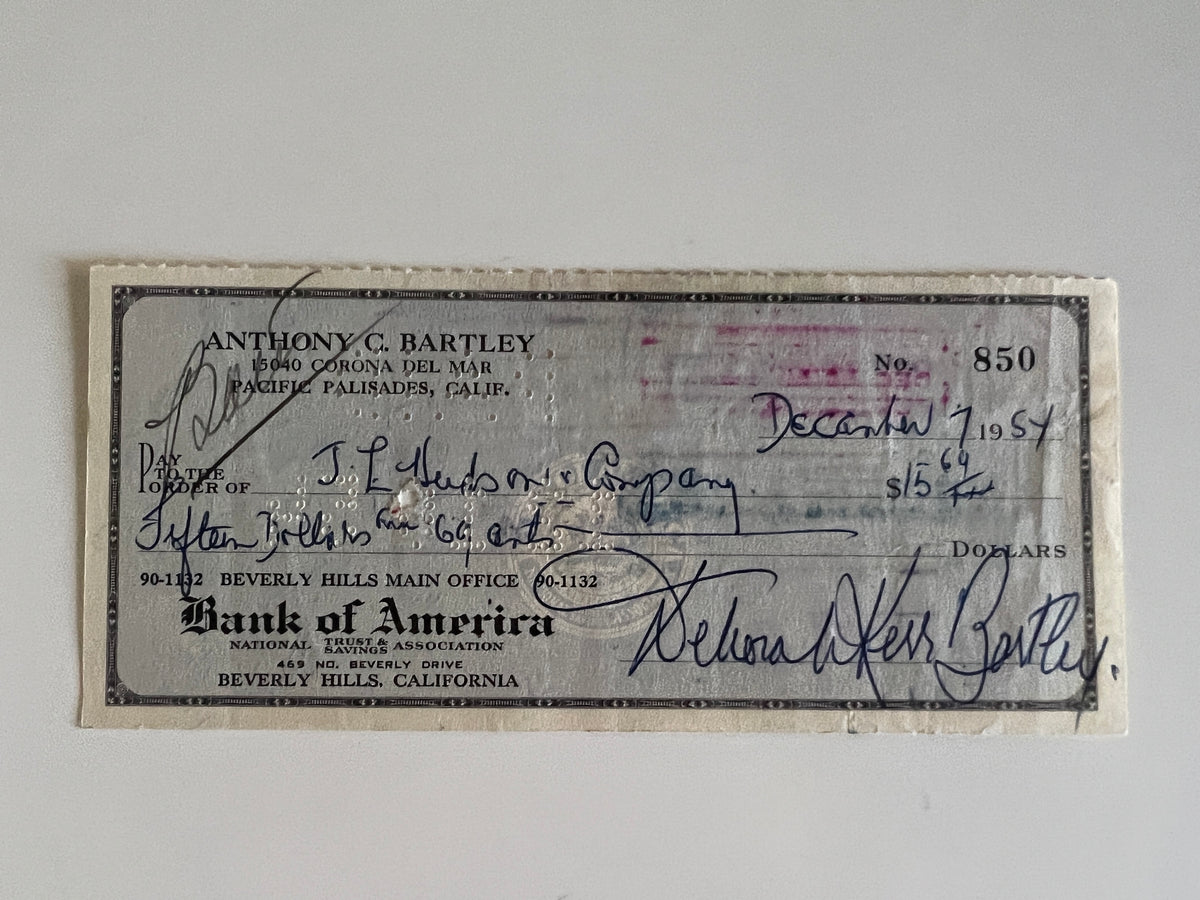 ANTHONY C. BARTLEY
15040 CORONA DEL MAR
PACIFIC PALISADES, CALIF.
No. 850
December 7 1954
PAY TO THE ORDER OF J. L Hudson & Company $15 69
Fifteen Dollars 69 cents DOLLARS
90-1132 BEVERLY HILLS MAIN OFFICE 90-1132
Bank of America
NATIONAL TRUST & SAVINGS ASSOCIATION
469 NO. BEVERLY DRIVE
BEVERLY HILLS, CALIFORNIA
Deborah Kerr Bartley.